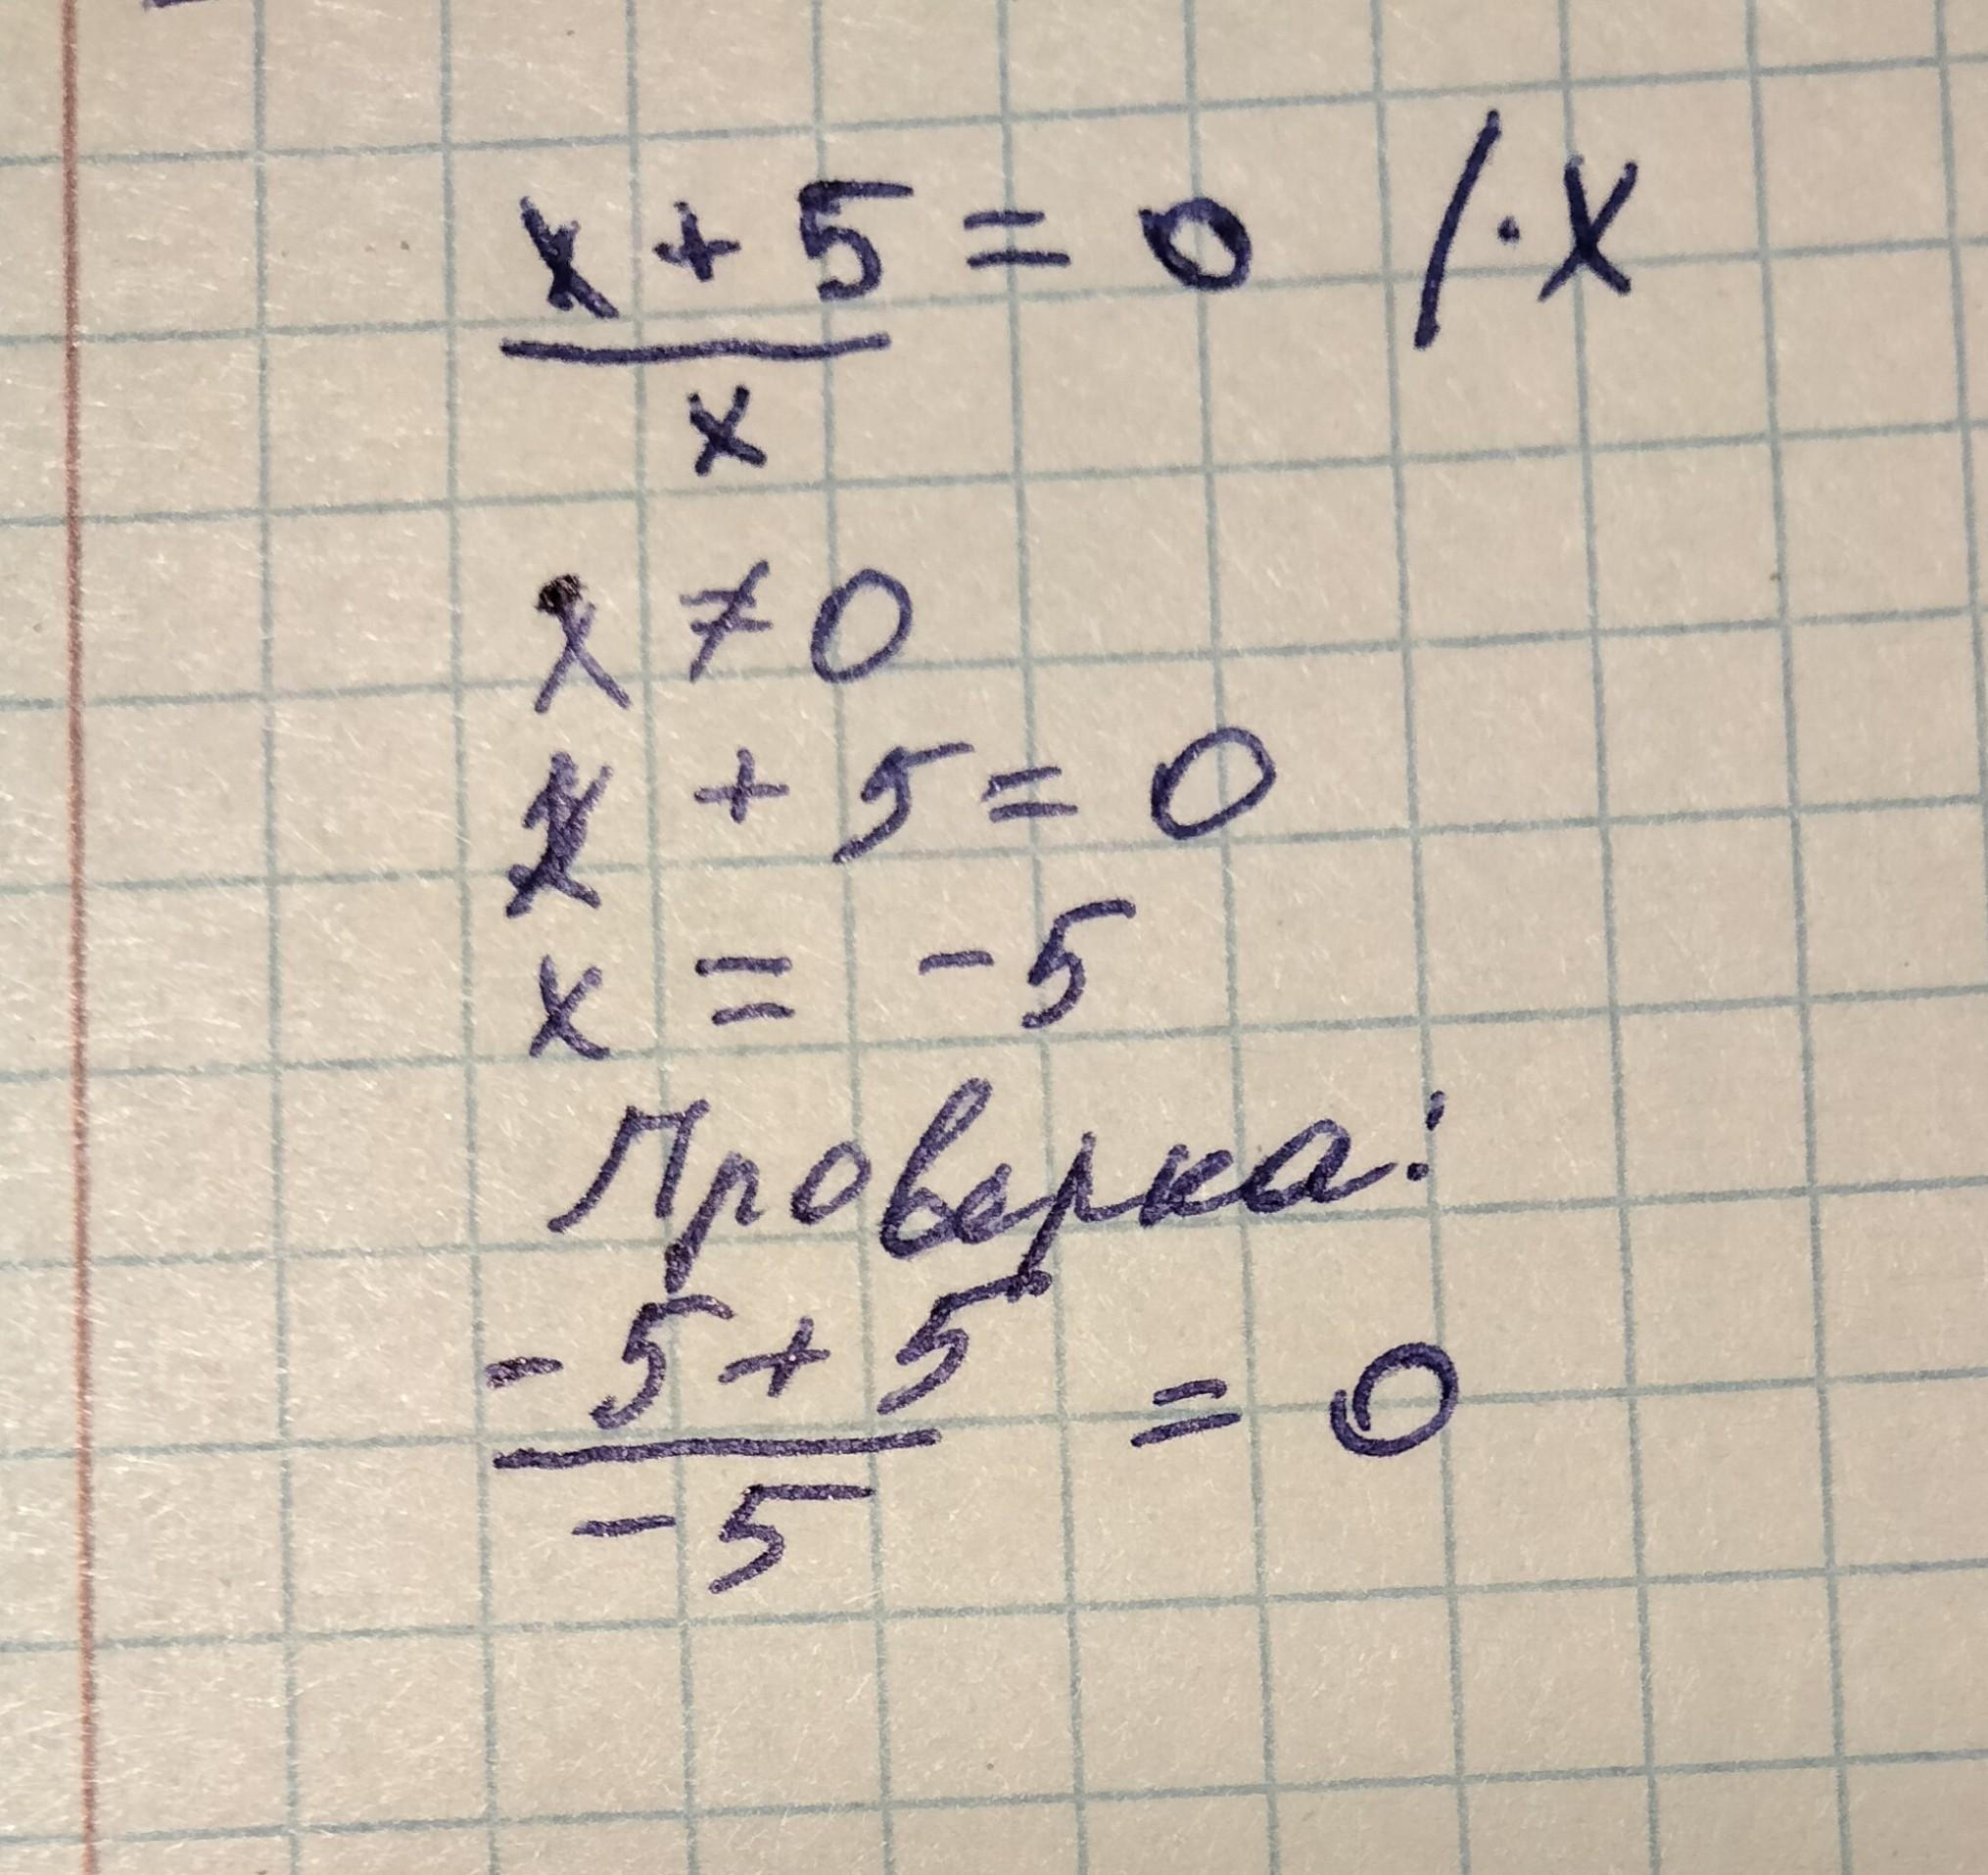 x + 5 = 0 / · x
x
x ≠ 0
x + 5 = 0
x = -5
Проверка:
-5 + 5 = 0
-5